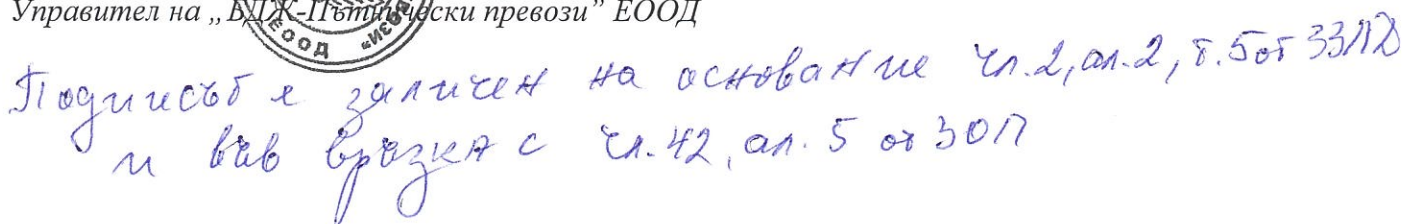 Управител на „БДЖ-Пътнически превози” ЕООД
ЕООД
Подписът е заличен на основание чл.2, ал.2, т.5 от ЗЗЛД
и във връзка с чл.42, ал.5 от ЗОП